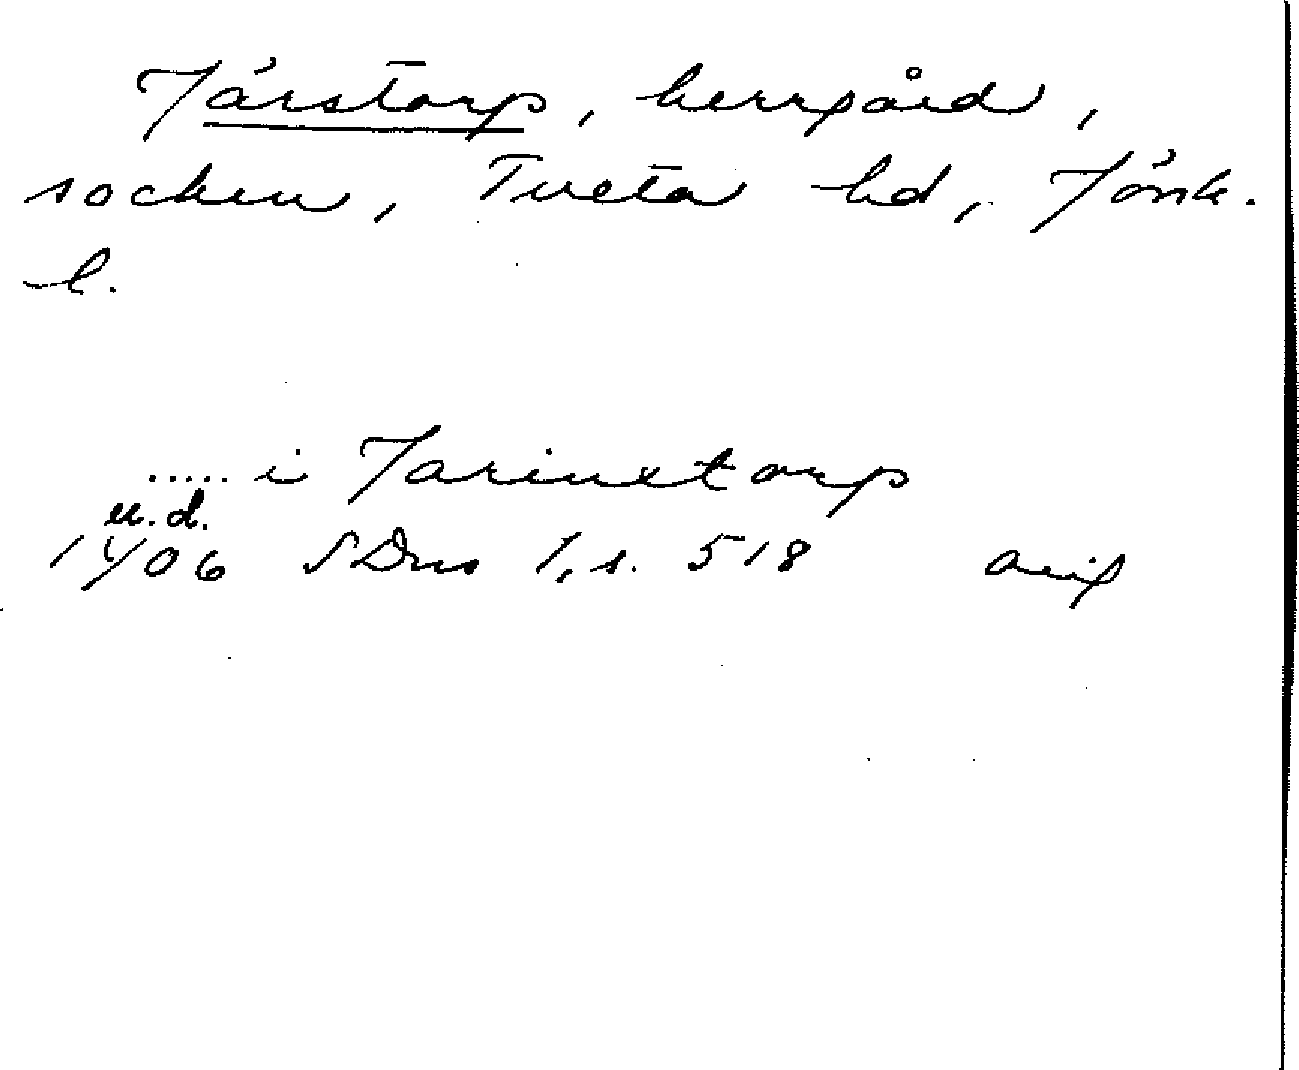 Järstorp, herrgård,
socken, Tveta hd, Jönk.
l.
..... i Jarinetorp
u.d.
1406 SDns 1, s. 518 avsk